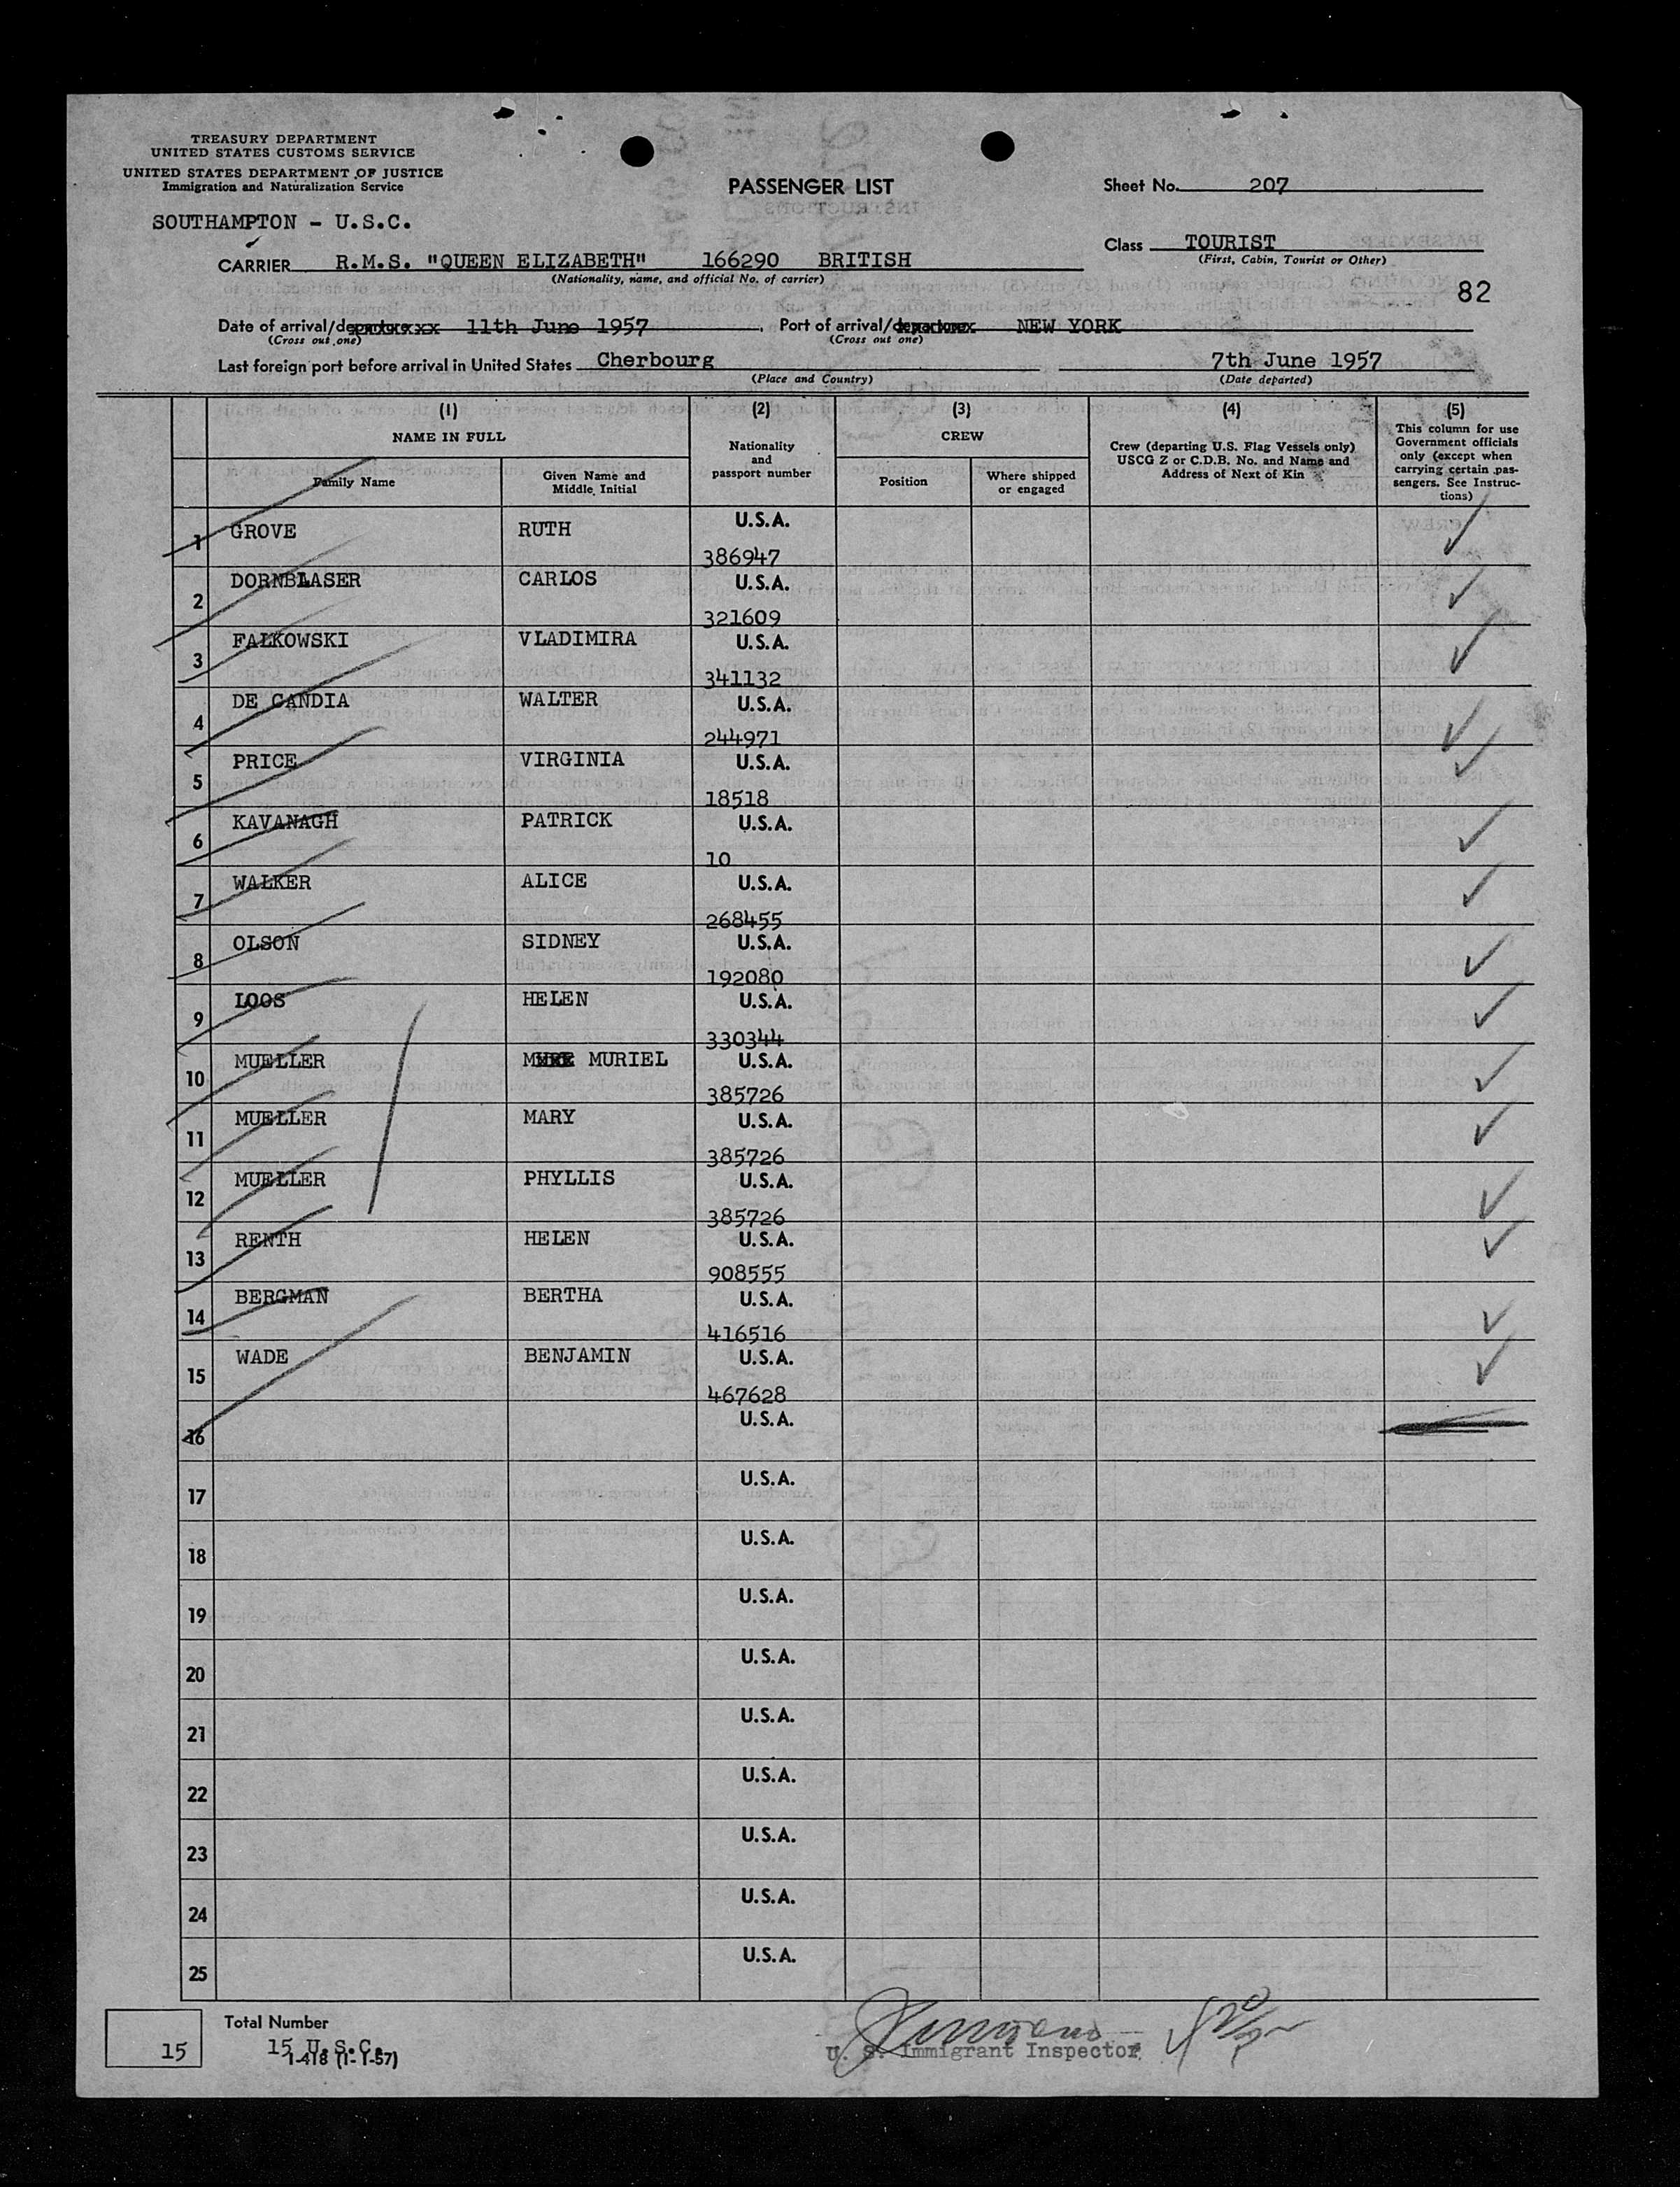 TREASURY DEPARTMENT
UNITED STATES CUSTOMS SERVICE
UNITED STATES DEPARTMENT OF JUSTICE
Immigration and Naturalization Service
SOUTHAMPTON - U.S.C.
PASSENGER LIST
Sheet No. 207
Class TOURIST
(First, Cabin, Tourist or Other)
82
CARRIER R.M.S. "QUEEN ELIZABETH" 166290 BRITISH
(Nationality, name, and official No. of carrier)
Date of arrival/departure 11th June 1957, Port of arrival/departure NEW YORK
(Cross out one) (Cross out one)
Last foreign port before arrival in United States Cherbourg 7th June 1957
(Place and Country) (Date departed)
(1) (2) (3) (4) (5)
NAME IN FULL
Family Name
Given Name and Middle Initial
Nationality and passport number
CREW
Position
Where shipped or engaged
Crew (departing U.S. Flag Vessels only) USCG Z or C.D.B. No. and Name and Address of Next of Kin
This column for use Government officials only (except when carrying certain passengers. See Instructions)
1 GROVE RUTH U.S.A. 386947
2 DORNBLASER CARLOS U.S.A. 321609
3 FALKOWSKI VLADIMIRA U.S.A. 341132
4 DE CANDIA WALTER U.S.A. 244971
5 PRICE VIRGINIA U.S.A. 18518
6 KAVANAGH PATRICK U.S.A. 10
7 WALKER ALICE U.S.A. 268455
8 OLSON SIDNEY U.S.A. 192080
9 LOOS HELEN U.S.A. 330344
10 MUELLER MURIEL U.S.A. 385726
11 MUELLER MARY U.S.A. 385726
12 MUELLER PHYLLIS U.S.A. 385726
13 RENTH HELEN U.S.A. 908555
14 BERGMAN BERTHA U.S.A. 416516
15 WADE BENJAMIN U.S.A. 467628
16 U.S.A.
17 U.S.A.
18 U.S.A.
19 U.S.A.
20 U.S.A.
21 U.S.A.
22 U.S.A.
23 U.S.A.
24 U.S.A.
25 U.S.A.
Total Number
15
15 U.S.C.
I-418 (1-1-57)
U. S. Immigrant Inspector